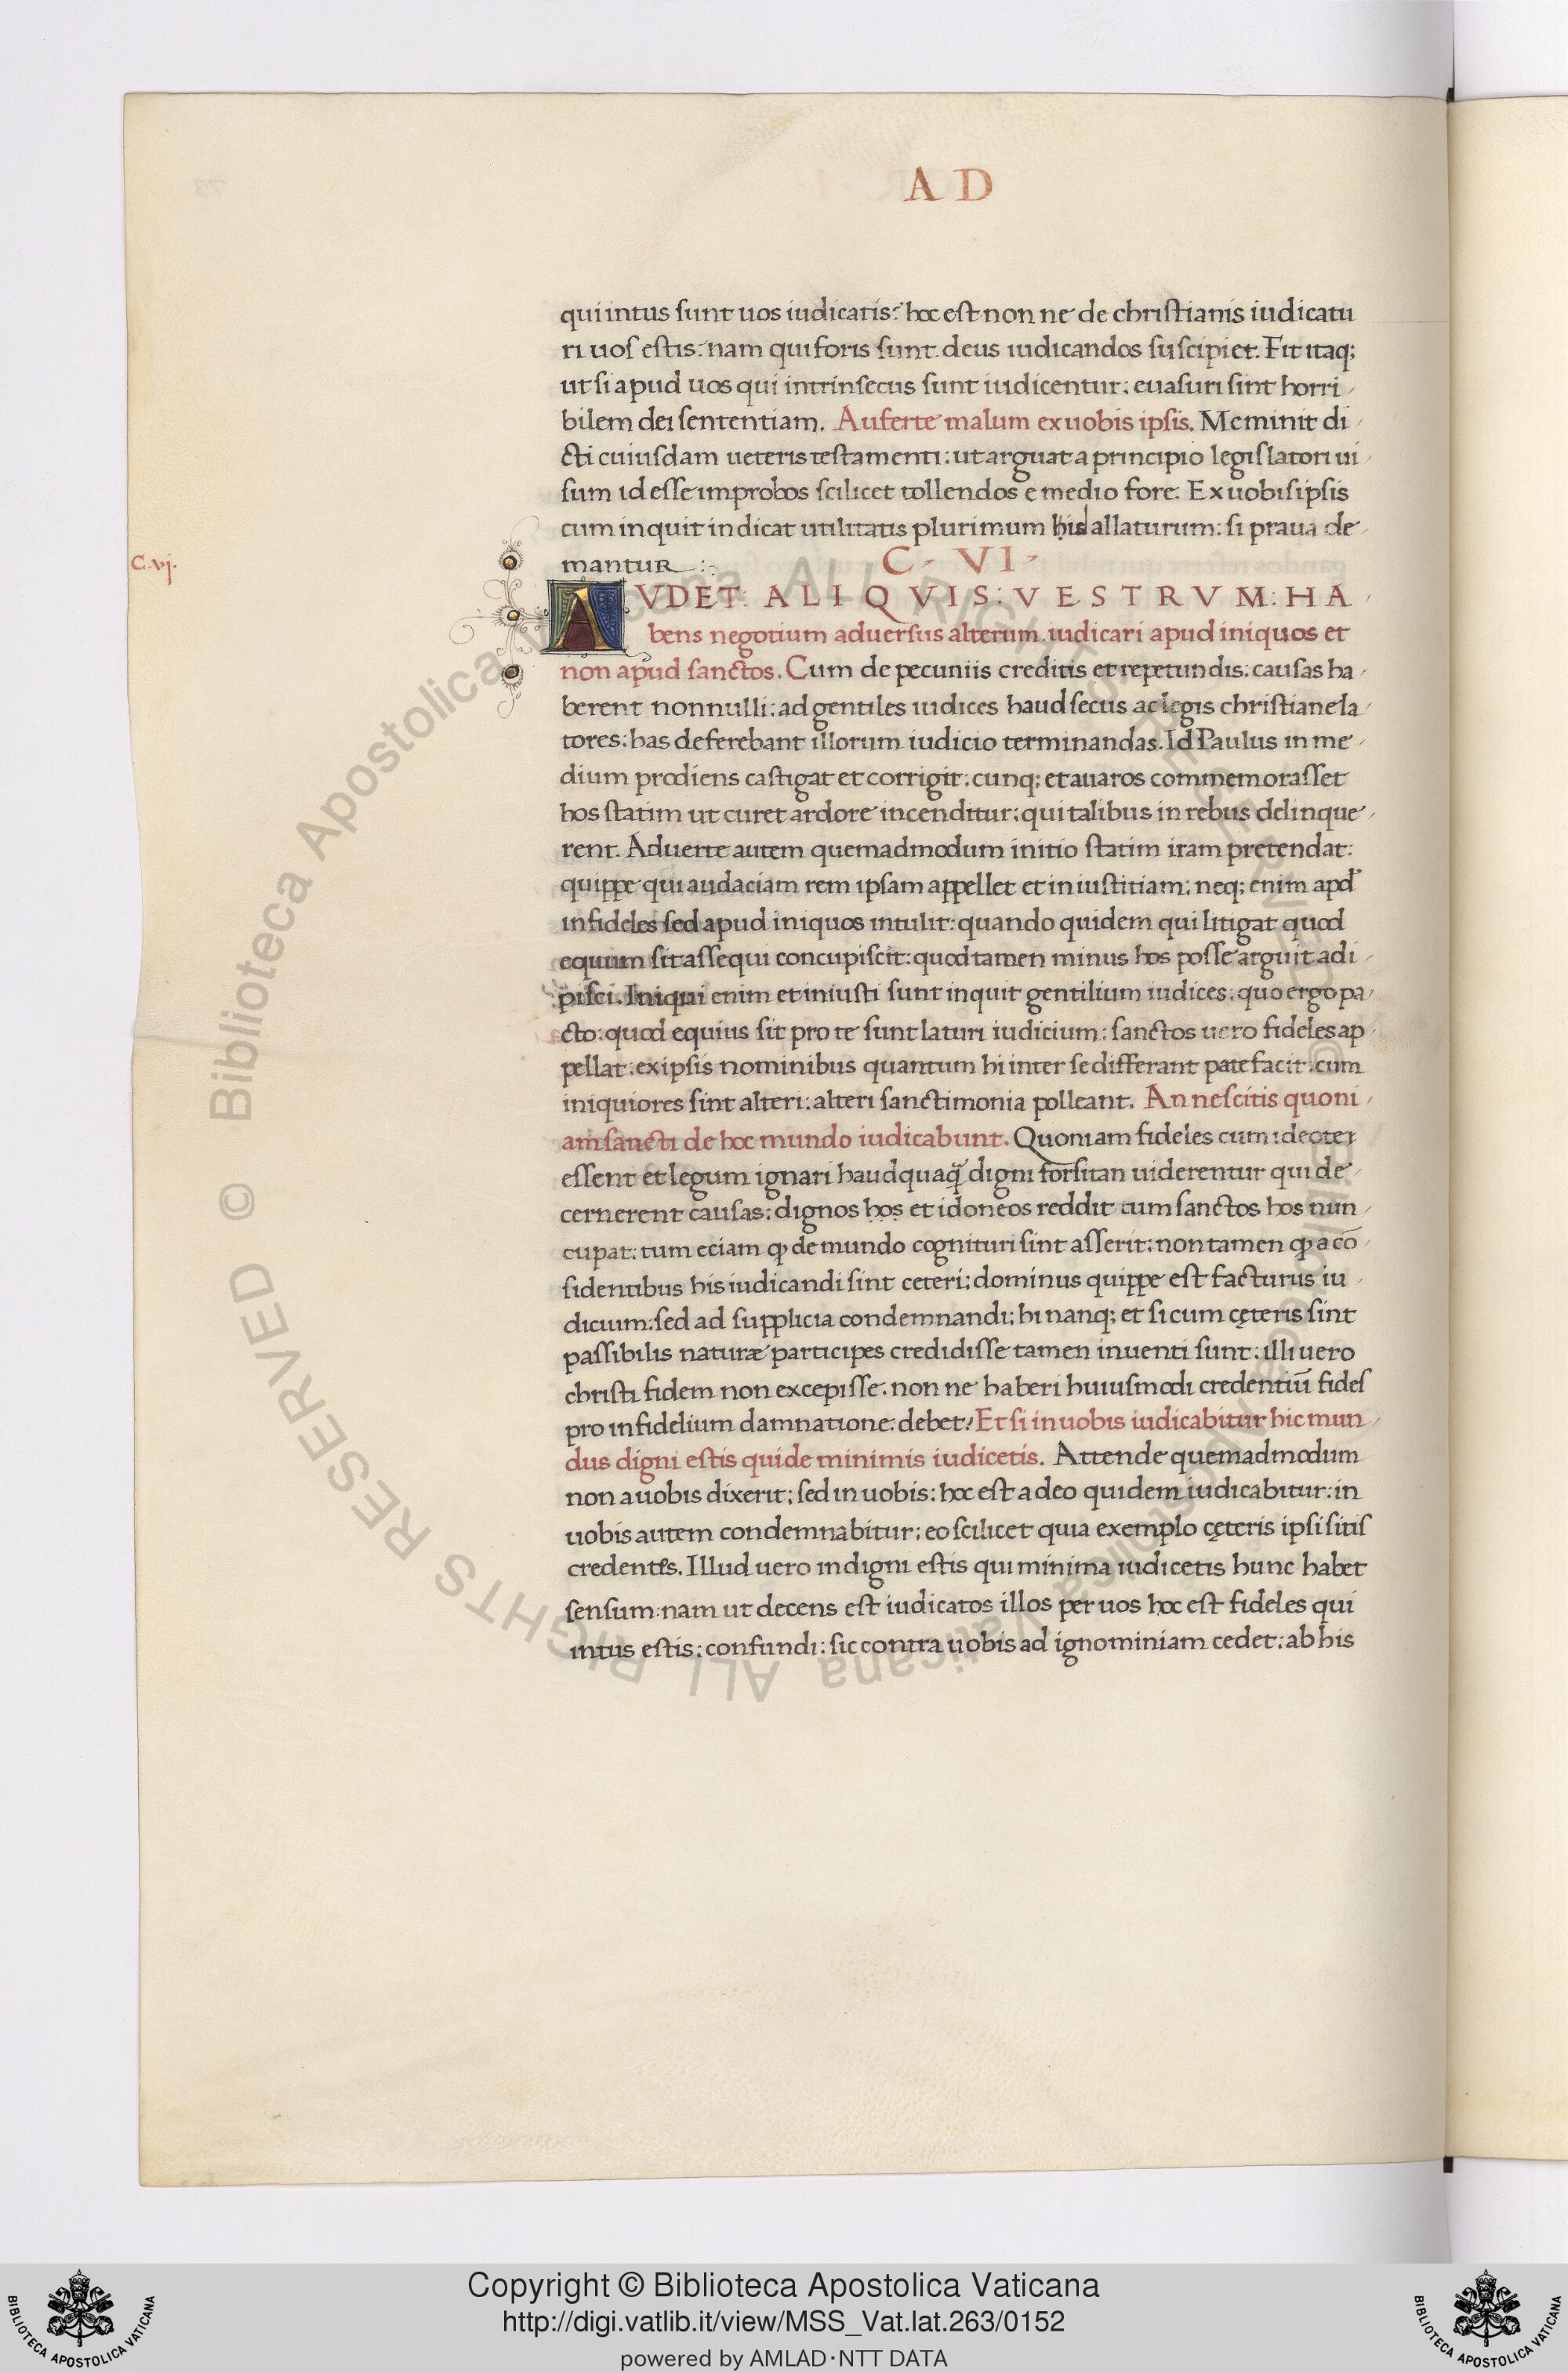 A D
qui intus sunt uos iudicatis: hoc est non ne de christianis iudicatu
ri uos estis: nam qui foris sunt deus iudicandos suscipiet. Fit itaq;
ut si apud uos qui intrinsecus sunt iudicentur: euasuri sint horri
bilem dei sententiam. Auferte malum ex uobis ipsis. Meminit di
cti cuiusdam ueteris testamenti: ut arguat a principio legislatori ui
sum id esse improbos scilicet tollendos e medio fore. Ex uobis ipsis
cum inquit indicat utilitatis plurimum his allaturum: si praua de
mantur
C. VI
C. vj.
AVDET: ALIQVIS: VESTRVM: HA
bens negotium aduersus alterum iudicari apud iniquos et
non apud sanctos. Cum de pecuniis creditis et repetundis: causas ha
berent nonnulli: ad gentiles iudices haud secus ac legis christiane la
tores: has deferebant illorum iudicio terminandas. Id Paulus in me
dium prodiens castigat et corrigit: cunq; et auaros commemorasset
hos statim ut curet ardore incenditur: qui talibus in rebus delinque
rent. Aduerte autem quemadmodum initio statim iram pretendat:
quippe qui audaciam rem ipsam appellet et iniustitiam: neq; enim apd
infideles sed apud iniquos intulit: quando quidem qui litigat quod
equum sit assequi concupiscit: quod tamen minus hos posse arguit adi
pisci. Iniqui enim et iniusti sunt inquit gentilium iudices. quo ergo pa
cto: quod equius sit pro te sunt laturi iudicium: sanctos uero fideles ap
pellat: ex ipsis nominibus quantum hi inter se differant patefacit: cum
iniquiores sint alteri: alteri sanctimonia polleant. An nescitis quoni
am sancti de hoc mundo iudicabunt. Quoniam fideles cum ideotei
essent et legum ignari haudquaq̃ digni forsitan uiderentur qui de
cernerent causas: dignos hos et idoneos reddit cum sanctos hos nun
cupat: tum eciam ꝙ de mundo cognituri sint asserit: non tamen ꝙ a cō
sidentibus his iudicandi sint ceteri: dominus quippe est facturus iu
dicium: sed ad supplicia condemnandi: hi nanq; et si cum cęteris sint
passibilis naturæ participes credidisse tamen inuenti sunt: illi uero
christi fidem non excepisse. non ne haberi huiusmodi credentiū fides
pro infidelium damnatione debet? Et si in uobis iudicabitur hic mun
dus digni estis qui de minimis iudicetis. Attende quemadmodum
non a uobis dixerit: sed in uobis: hoc est a deo quidem iudicabitur: in
uobis autem condemnabitur: eo scilicet quia exemplo cęteris ipsi sitis
credentes. Illud uero indigni estis qui minima iudicetis hunc habet
sensum: nam ut decens est iudicatos illos per uos hoc est fideles qui
intus estis: confundi: sic contra uobis ad ignominiam cedet: ab his
© Biblioteca Apostolica Vaticana ALL RIGHTS RESERVED
Copyright © Biblioteca Apostolica Vaticana
http://digi.vatlib.it/view/MSS_Vat.lat.263/0152
powered by AMLAD·NTT DATA
BIBLIOTECA APOSTOLICA VATICANA
BIBLIOTECA APOSTOLICA VATICANA